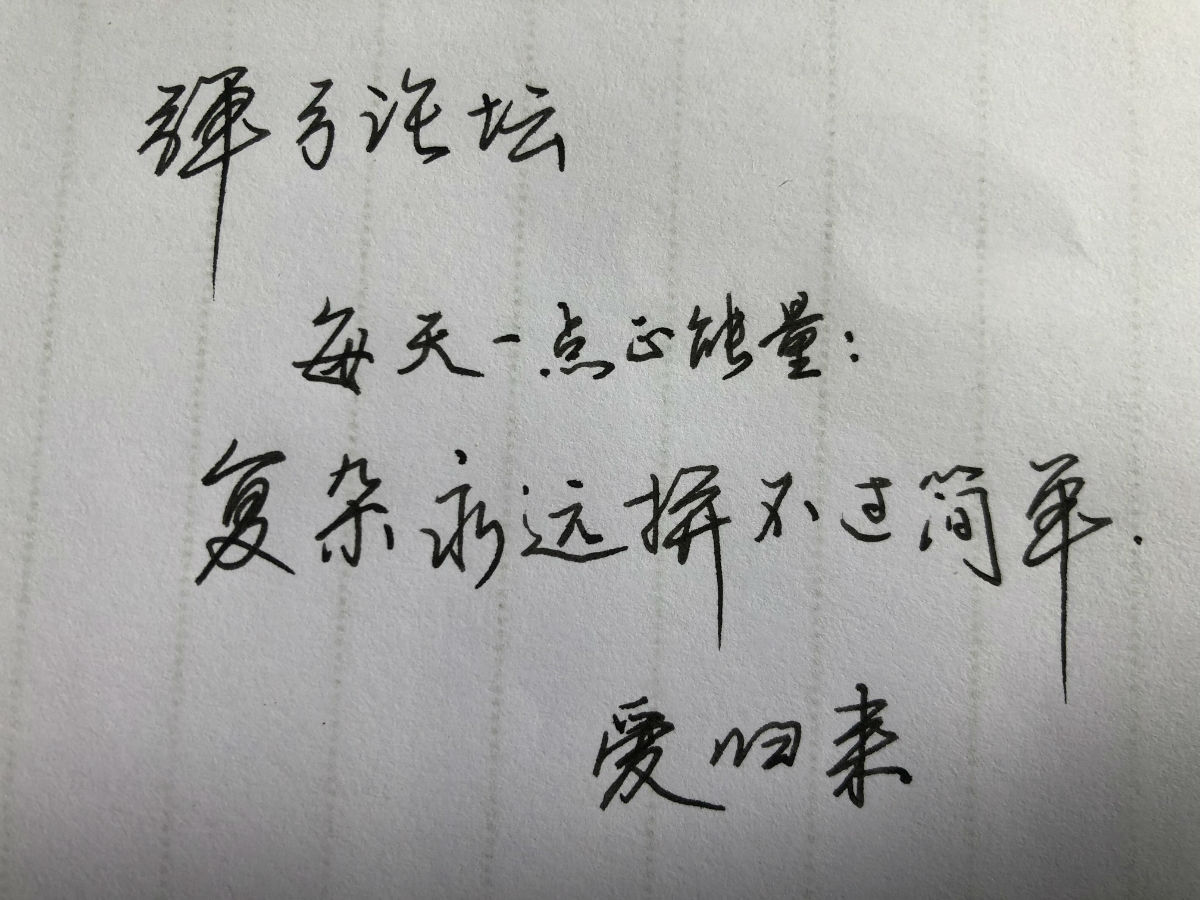 弹弓论坛
每天一点正能量:
复杂永远拼不过简单.
爱归来